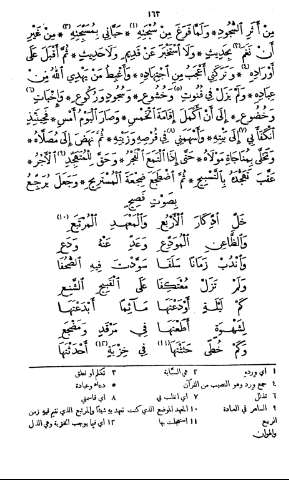 ١٦٣
مِنْ أَثَرِ ٱلسُّجُودِ * وَلَمَّا فَرَغَ مِنْ سُبْحَتِهِ (١) * حَيَّانِي بِمُسَبِّحَتِهِ (٢) * مِنْ غَيْرِ
أَنْ نَغَمَ (٣) بِحَدِيثٍ * وَلَا ٱسْتَخْبَرَ عَنْ قَدِيمٍ وَلَا حَدِيثٍ * ثُمَّ أَقْبَلَ عَلَى
أَوْرَادِهِ (٤) * وَتَرَكَنِي أَعْجَبُ مِنِ ٱجْتِهَادِهِ * وَأَغْبِطُ مَنْ يَهْدِي ٱللّٰهُ مِنْ
عِبَادِهِ * وَلَمْ يَزَلْ فِي قُنُوتٍ (٥) وَخُشُوعٍ * وَسُجُودٍ وَرُكُوعٍ * وَإِخْبَاتٍ (٦)
وَخُضُوعٍ * إِلَى أَنْ أَكْمَلَ إِقَامَةَ ٱلْخَمْسِ * وَصَارَ ٱلْيَوْمُ أَمْسِ * فَحِينَئِذٍ
ٱنْكَفَأَ بِي (٧) إِلَى بَيْتِهِ * وَأَسْهَمَنِي (٨) فِي قُرْصِهِ وَزَيْتِهِ * ثُمَّ نَهَضَ إِلَى مُصَلَّاهُ *
وَتَخَلَّى بِمُنَاجَاةِ مَوْلَاهُ * حَتَّى إِذَا ٱلْتَمَعَ ٱلْفَجْرُ * وَحَقَّ لِلْمُتَهَجِّدِ (٩) ٱلْأَجْرُ *
عَقَّبَ تَهَجُّدَهُ بِٱلتَّسْبِيحِ * ثُمَّ ٱضْطَجَعَ ضَجْعَةَ ٱلْمُسْتَرِيحِ * وَجَعَلَ يُرَجِّعُ
بِصَوْتٍ فَصِيحٍ
خَلِّ ٱدِّكَارَ ٱلْأَرْبُعِ وَٱلْمَعْهَدِ ٱلْمُرْتَبَعِ (١٠)
وَٱلظَّاعِنِ ٱلْمُوَدِّعِ وَعَدِّ عَنْهُ وَدَعِ
وَٱنْدُبْ زَمَانًا سَلَفَا سَوَّدْتَ فِيهِ ٱلصُّحُفَا
وَلَمْ تَزَلْ مُعْتَكِفَا عَلَى ٱلْقَبِيحِ ٱلشَّنِعِ
كَمْ لَيْلَةٍ أَوْدَعْتَهَا مَآثِمًا أَبْدَعْتَهَا
لِشَهْوَةٍ أَطَعْتَهَا فِي مَرْقَدٍ وَمَضْجَعِ
وَكَمْ خُطًى حَثَثْتَهَا (١١) فِي خِزْيَةٍ (١٢) أَحْدَثْتَهَا
١ اي ورده ٢ هي السبّابة ٣ تكلم او نطق
٤ جمع ورد وهو النصيب من القرآن ٥ دعاء وعبادة
٦ تذلل ٧ اي انقلب بي ٨ اي قاسمني
٩ الساهر في العبادة ١٠ المعهد الموضع الذي كنت تعهد به شيئاً والمرتبع الذي تقيم فيه زمن
الربيع ١١ استعجلت بها ١٢ اي فيما يوجب الخزية وهي الذل
والهوان